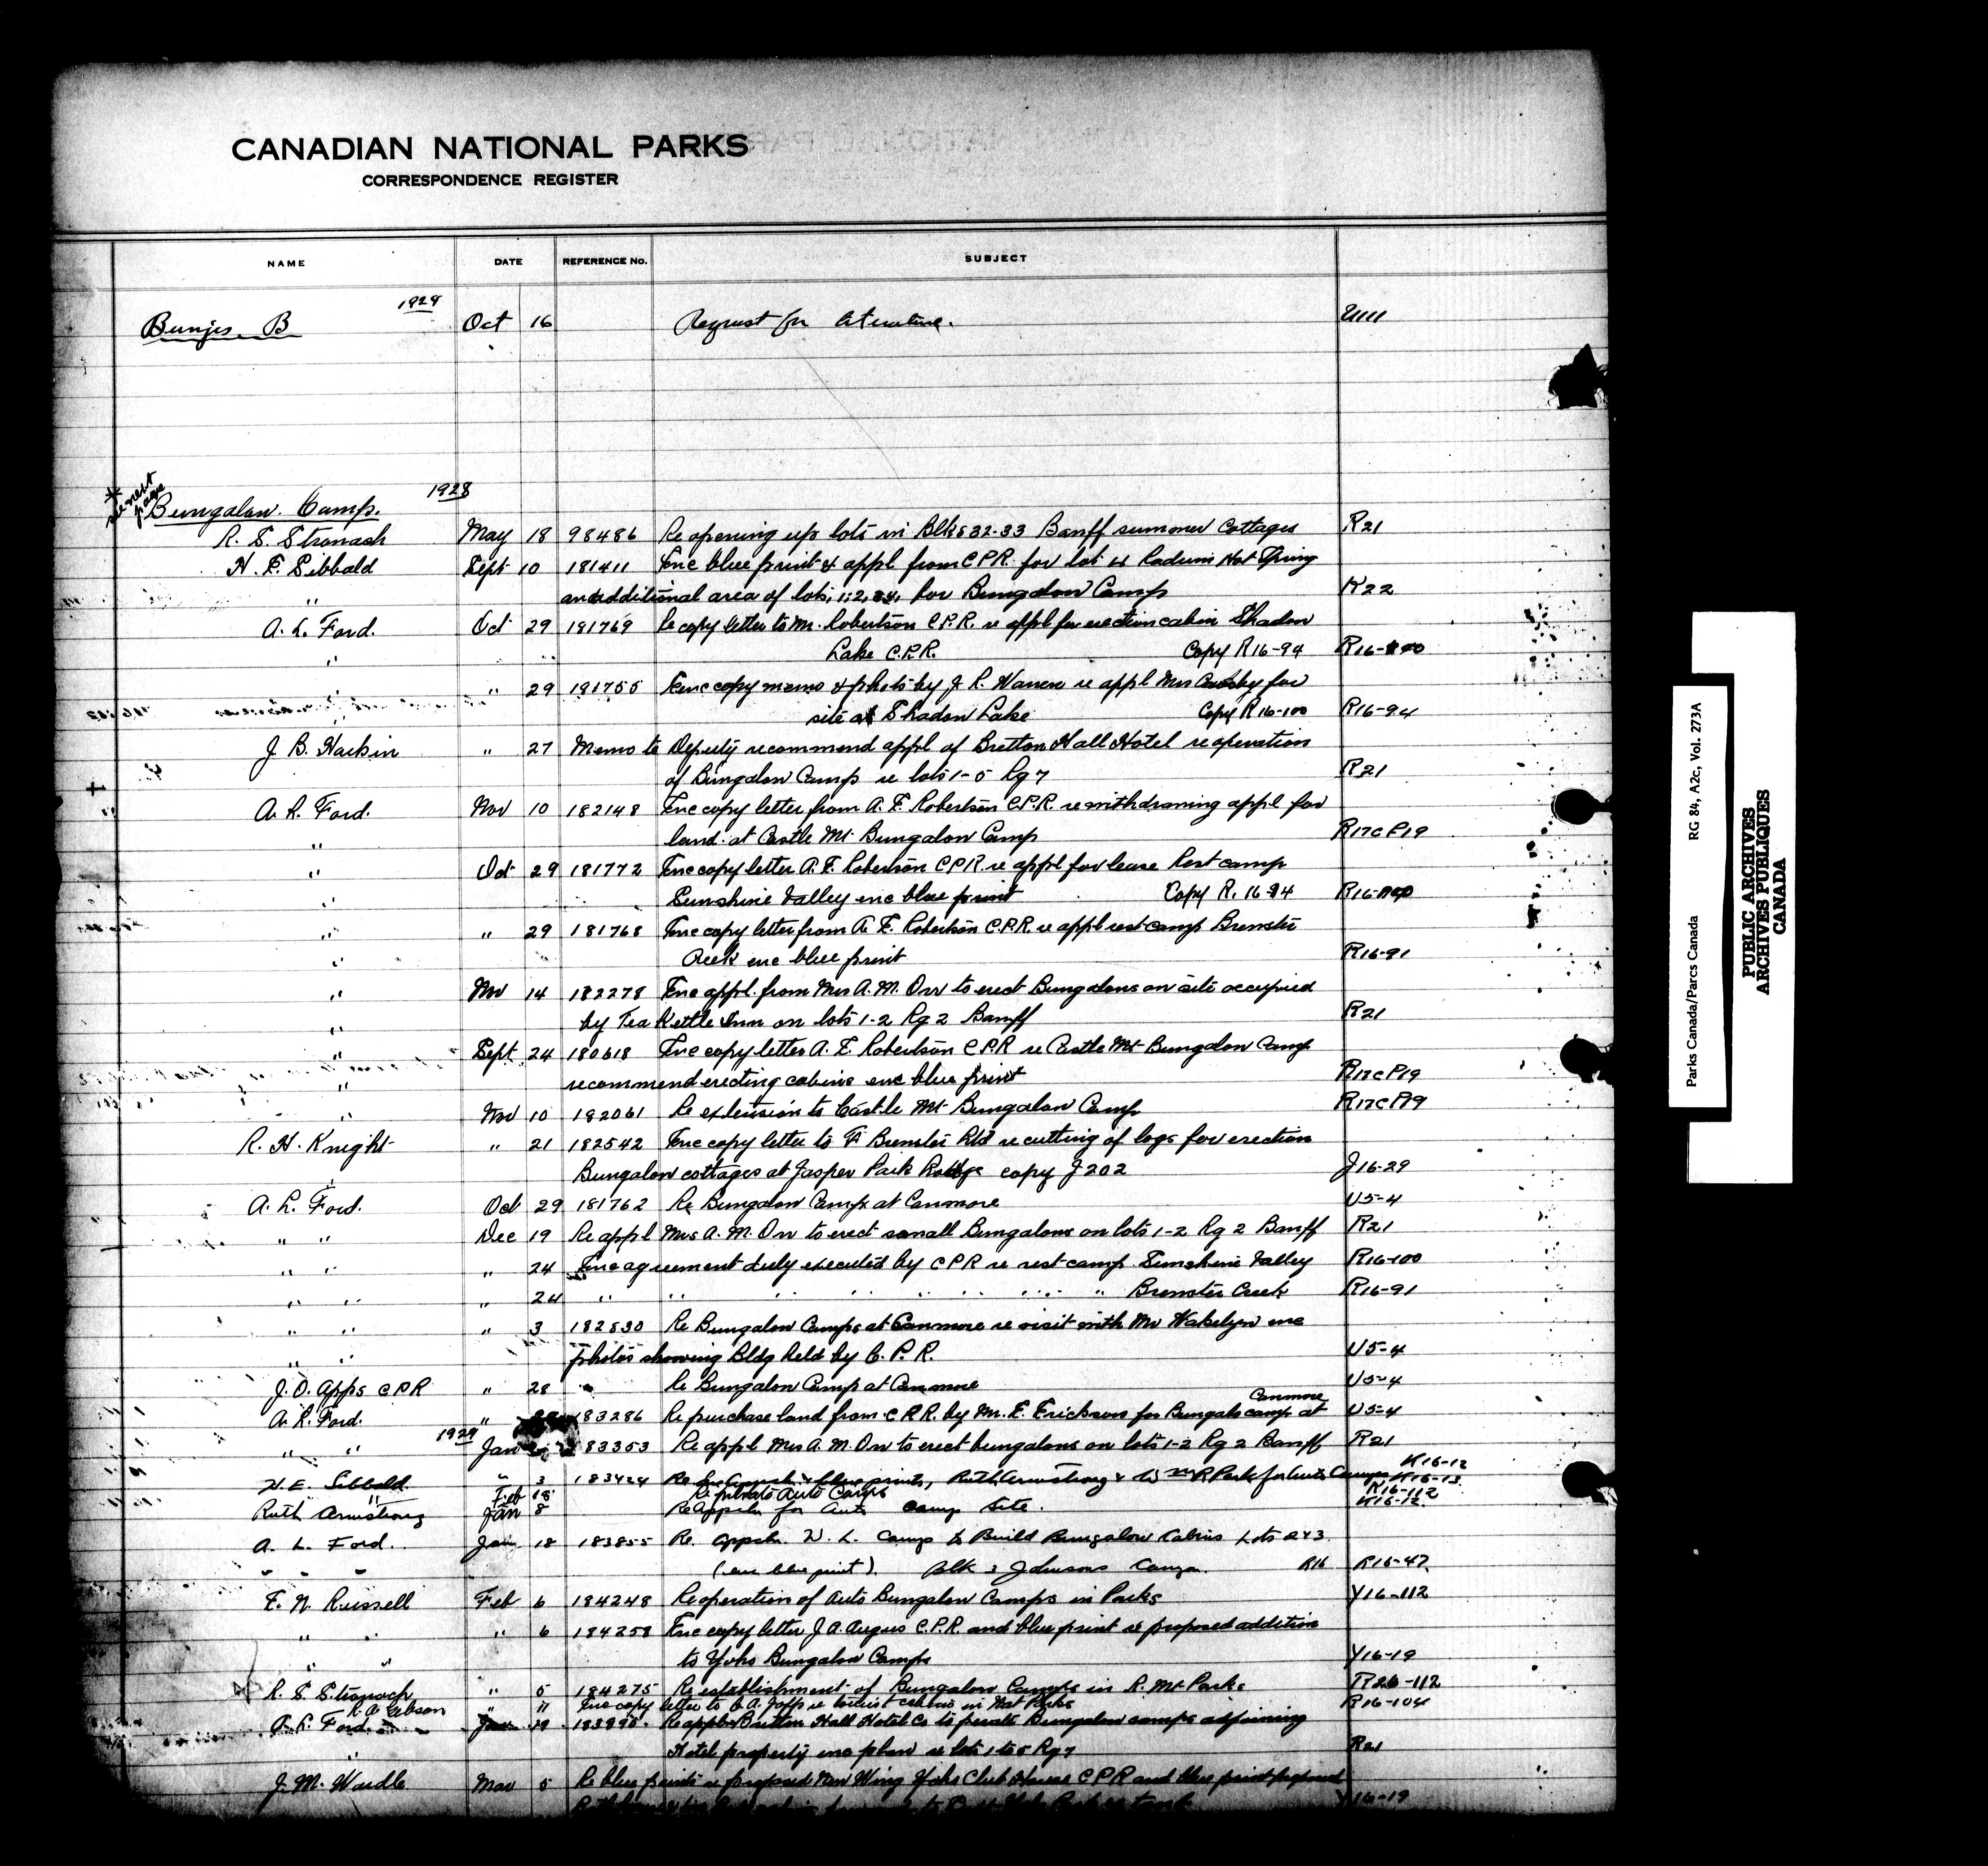 CANADIAN NATIONAL PARKS
CORRESPONDENCE REGISTER
NAME DATE REFERENCE No. SUBJECT
1929
Bunjes. B Oct 16 Request for literature.
1928
Bungalow Camp.
R. S. Stronach May 18 98486 Re opening up lots in Blks 32-33 Banff summer cottages R21
H. E. Sibbald Sept 10 181411 Enc blue print & appl from C.P.R. for lot 4 Radium Hot Spring
" and additional area of lots, 1,2, for Bungalow Camp K22
A. L. Ford. Oct 29 181769 Re copy letter to Mr. Robertson C.P.R. re appl for erection cabin Shadow
" Lake C.P.R. Copy R16-94 R16-100
" " 29 181755 Enc copy memo & photo by J. R. Warren re appl Mrs for
" site at Shadow Lake Copy R16-100 R16-94
J. B. Harkin " 27 Memo to Deputy recommend appl of Bretton Hall Hotel re operation
of Bungalow Camp re lots 1-5 Rg 7 R21
A. L. Ford. Nov 10 182148 Enc copy letter from A. E. Robertson C.P.R. re withdrawing appl for
" land at Castle Mt Bungalow Camp R17CP19
" Oct 29 181772 Enc copy letter A. E. Robertson C.P.R. re appl for lease Rest camp
" Sunshine Valley enc blue print Copy R. 16 94 R16-100
" " 29 181768 Enc copy letter from A. E. Robertson C.P.R. re appl rest camp Brewster
" Creek enc blue print R16-91
" Nov 14 182278 Enc appl. from Mrs A. M. Orr to erect Bungalows on site occupied
" by Tea Kettle Inn on lots 1-2 Rg 2 Banff R21
" Sept 24 180618 Enc copy letter A. E. Robertson C.P.R. re Castle Mt Bungalow Camp
" recommend erecting cabins enc blue print R17CP19
" Nov 10 182061 Re extension to Castle Mt Bungalow Camp R17CP19
R. H. Knight " 21 182542 Enc copy letter to F Brewster Ltd re cutting of logs for erection
Bungalow cottages at Jasper Park Lodge copy J202 J16-29
A. L. Ford. Oct 29 181762 Re Bungalow Camp at Canmore U5-4
" " Dec 19 Re appl Mrs A. M. Orr to erect small Bungalows on lots 1-2 Rg 2 Banff R21
" " " 24 Enc agreement duly executed by C P R re rest camp Sunshine Valley R16-100
" " " 24 " " " " " " " " Brewster Creek R16-91
" " " 3 182830 Re Bungalow Camps at Canmore re visit with Mr Wakelyn enc
" " photos showing Bldg held by C. P. R. U5-4
J. O. Apps C P R " 28 Re Bungalow Camp at Canmore U5-4
A. L. Ford. " 183286 Re purchase land from C.P.R. by Mr. E. Erickson for Bungalo camp at Canmore U5-4
1929
" " Jan 183353 Re appl Mrs A. M. Orr to erect bungalows on lots 1-2 Rg 2 Banff R21
H. E. Sibbald. " 3 183424 Re blue prints, Ruth Armstrong & Park for Auto Camps K16-12 K16-13
" Feb 18 Re private Auto Camps K16-112
Ruth Armstrong Jan 8 Re Appln for Auto camp site. K16-12
A. L. Ford. Jan 18 183855 Re. Appln. W. L. Camp to Build Bungalow Cabins Lots 2 & 3
" " " (enc blue print). Blk 2 Johnsons Canyon. R16 R16-47
F. N. Russell Feb 6 184248 Re operation of Auto Bungalow Camps in Parks Y16-112
" " " 6 184258 Enc copy letter J. A. Angus C.P.R. and blue print re proposed addition
" " to Yoho Bungalow Camps Y16-19
R. S. Stronach " 5 184275 Re establishment of Bungalow Camps in R. Mt Parks R26-112
R. A. Gibson " 11 Enc copy letter to re tourist cabins in Nat Parks R16-104
A. L. Ford. Jan 19 183890 Re appl Bretton Hall Hotel Co to private Bungalow camps adjoining
" Hotel property enc plan re lots 1 to 5 Rg 7 R21
J. M. Wardle Mar 5 Re blue prints re proposed New Wing Yoho Club House C P R and blue print proposed
Y16-19
Parks Canada/Parcs Canada RG 84, A2c, Vol. 273A
PUBLIC ARCHIVES
ARCHIVES PUBLIQUES
CANADA